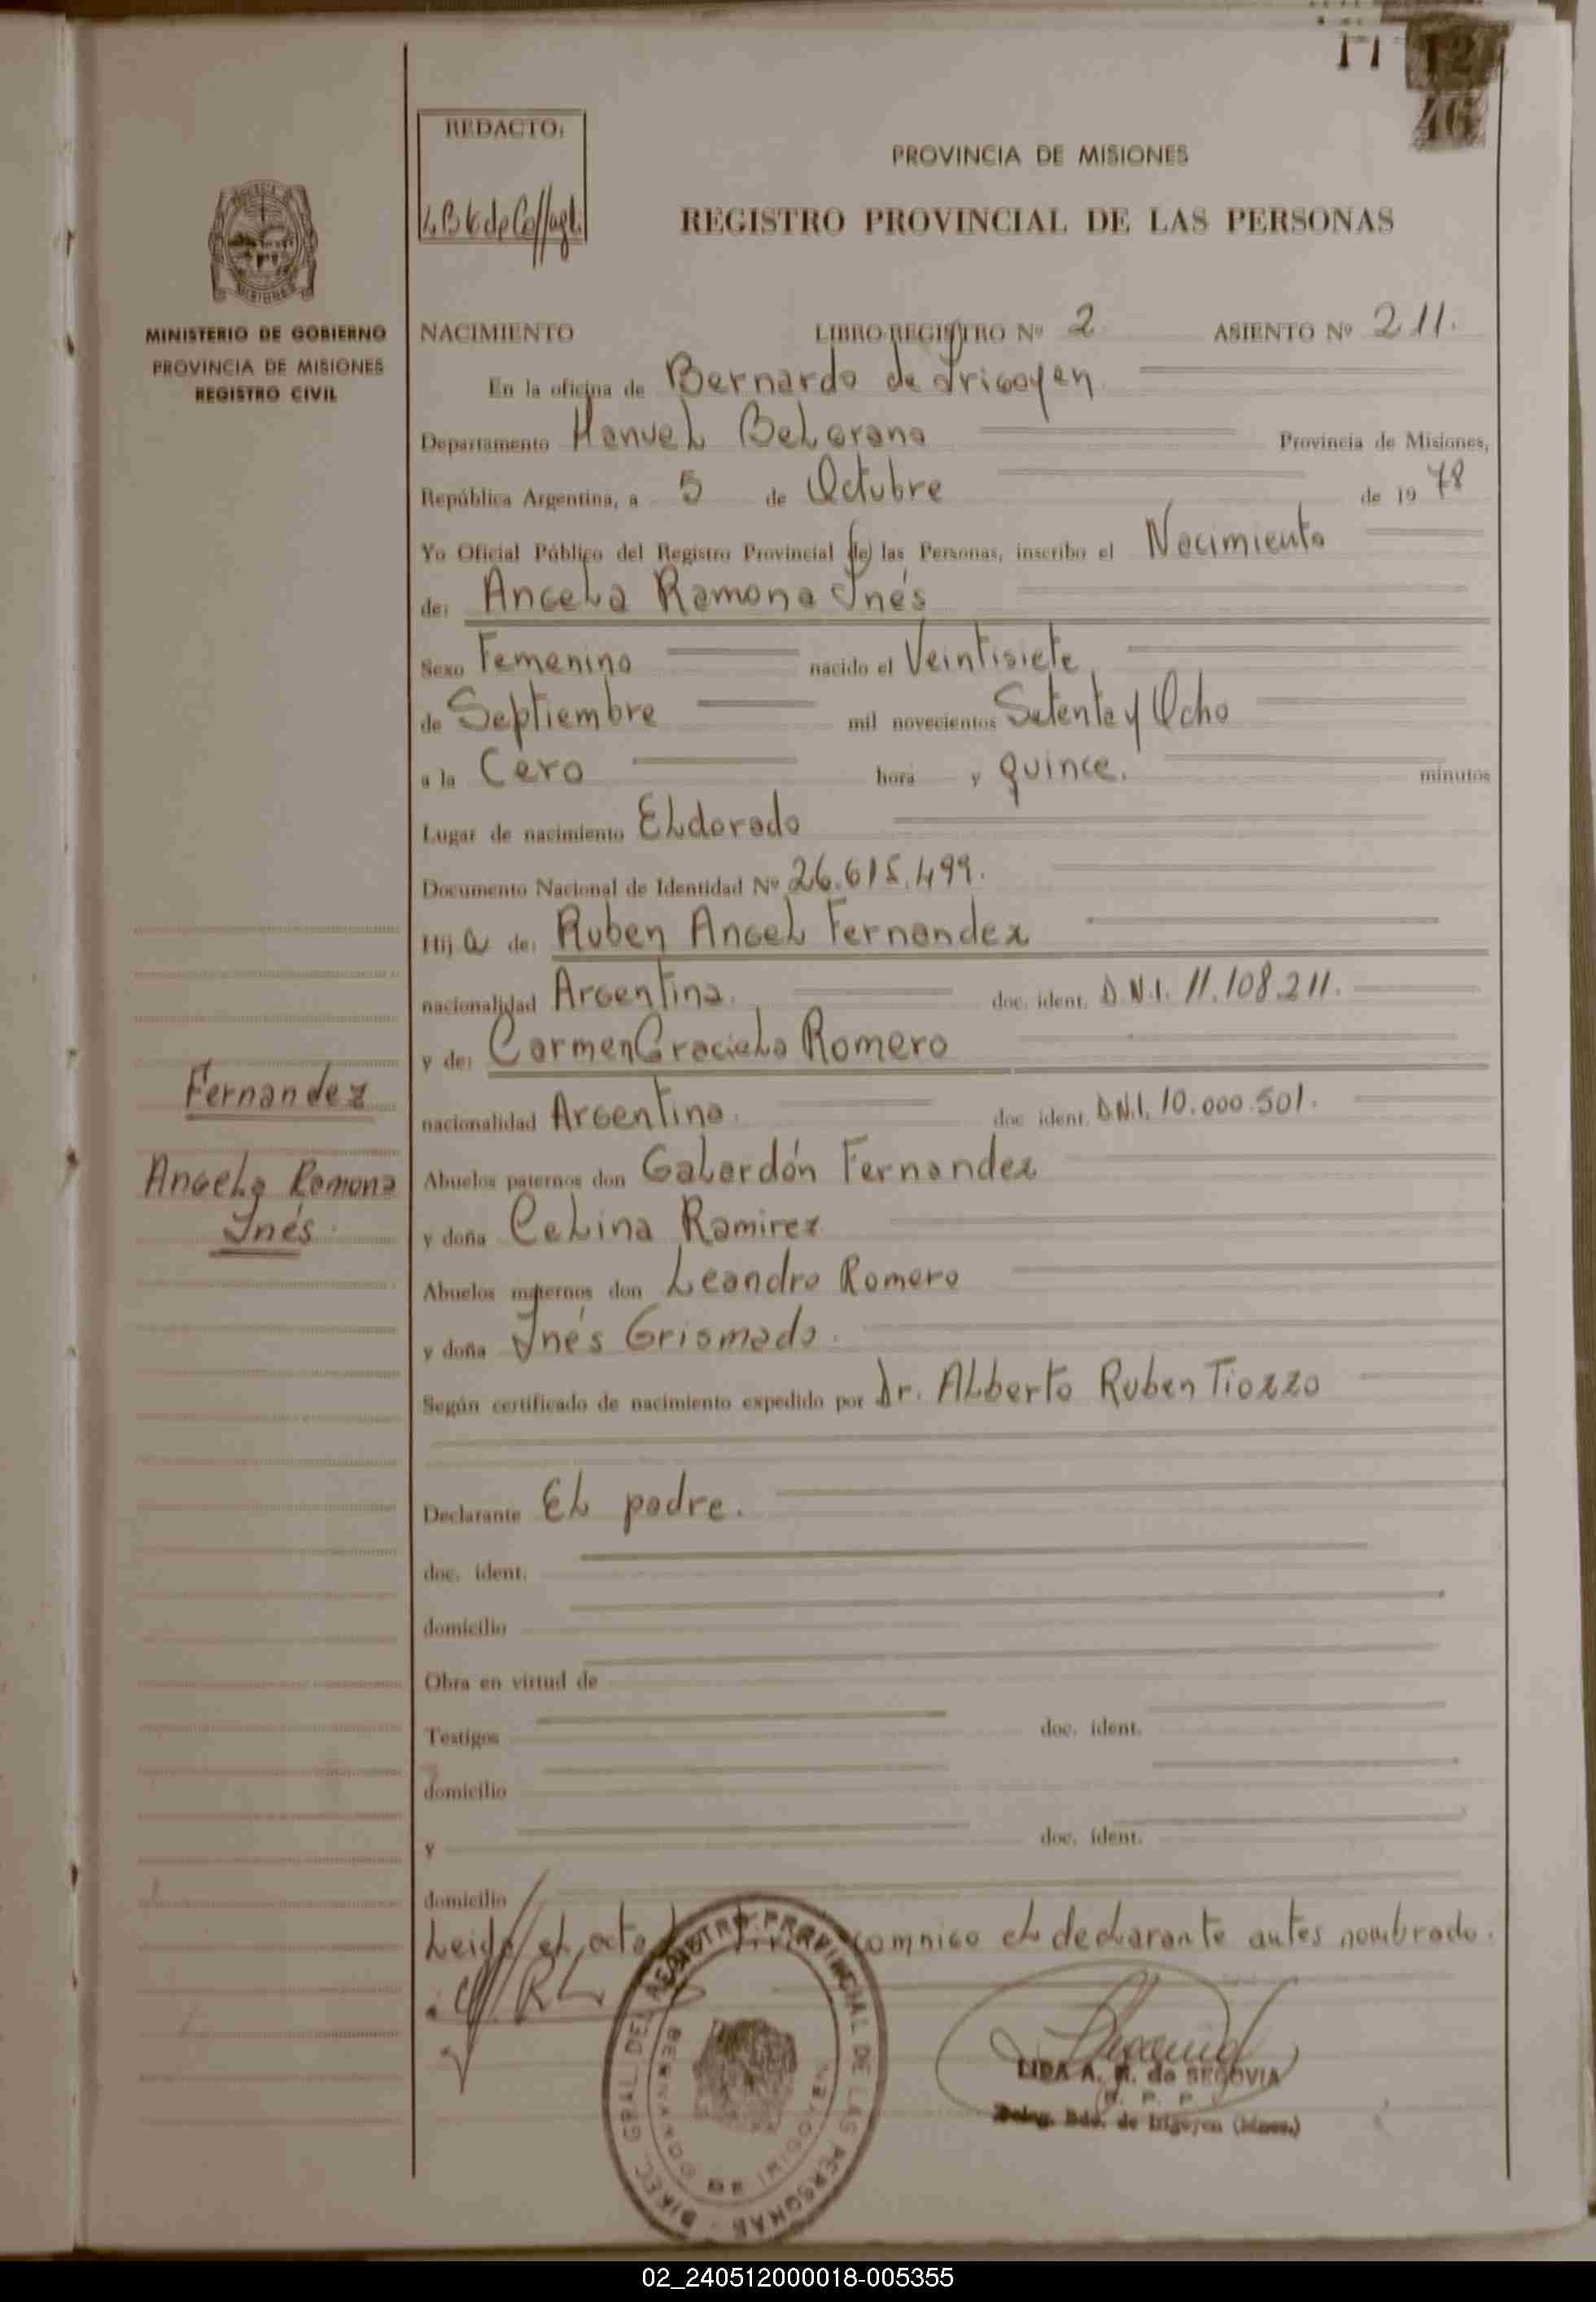 REDACTO:
PROVINCIA DE MISIONES
REGISTRO PROVINCIAL DE LAS PERSONAS
MISIONES
MINISTERIO DE GOBIERNO
PROVINCIA DE MISIONES
REGISTRO CIVIL
NACIMIENTO LIBRO-REGISTRO Nº 2 ASIENTO Nº 211.
En la oficina de Bernardo de Irigoyen
Departamento Manuel Belgrano Provincia de Misiones,
República Argentina, a 5 de Octubre de 1978
Yo Oficial Público del Registro Provincial de las Personas, inscribo el Nacimiento
de: Angela Ramona Inés
Sexo Femenino nacido el Veintisiete
de Septiembre mil novecientos Setenta y Ocho
a la Cero hora y quince. minutos
Lugar de nacimiento Eldorado
Documento Nacional de Identidad Nº 26.615.499.
Hija de: Ruben Angel Fernandez
nacionalidad Argentina. doc. ident. D.N.I. 11.108.211.
y de: Carmen Graciela Romero
nacionalidad Argentina. doc. ident. D.N.I. 10.000.501.
Fernandez
Angela Ramona
Inés.
Abuelos paternos don Galardón Fernandez
y doña Celina Ramirez
Abuelos maternos don Leandro Romero
y doña Inés Grismado.
Según certificado de nacimiento expedido por Dr. Alberto Ruben Tiozzo
Declarante El padre.
doc. ident.
domicilio
Obra en virtud de
Testigos doc. ident.
domicilio
y doc. ident.
domicilio
Leida el acta conmigo el declarante antes nombrado.
DIREC. GRAL. DEL REGISTRO PROVINCIAL DE LAS PERSONAS
BERNARDO DE IRIGOYEN
LIDA A. de SEGOVIA
Deleg. Bdo. de Irigoyen (Mnes.)
02_240512000018-005355